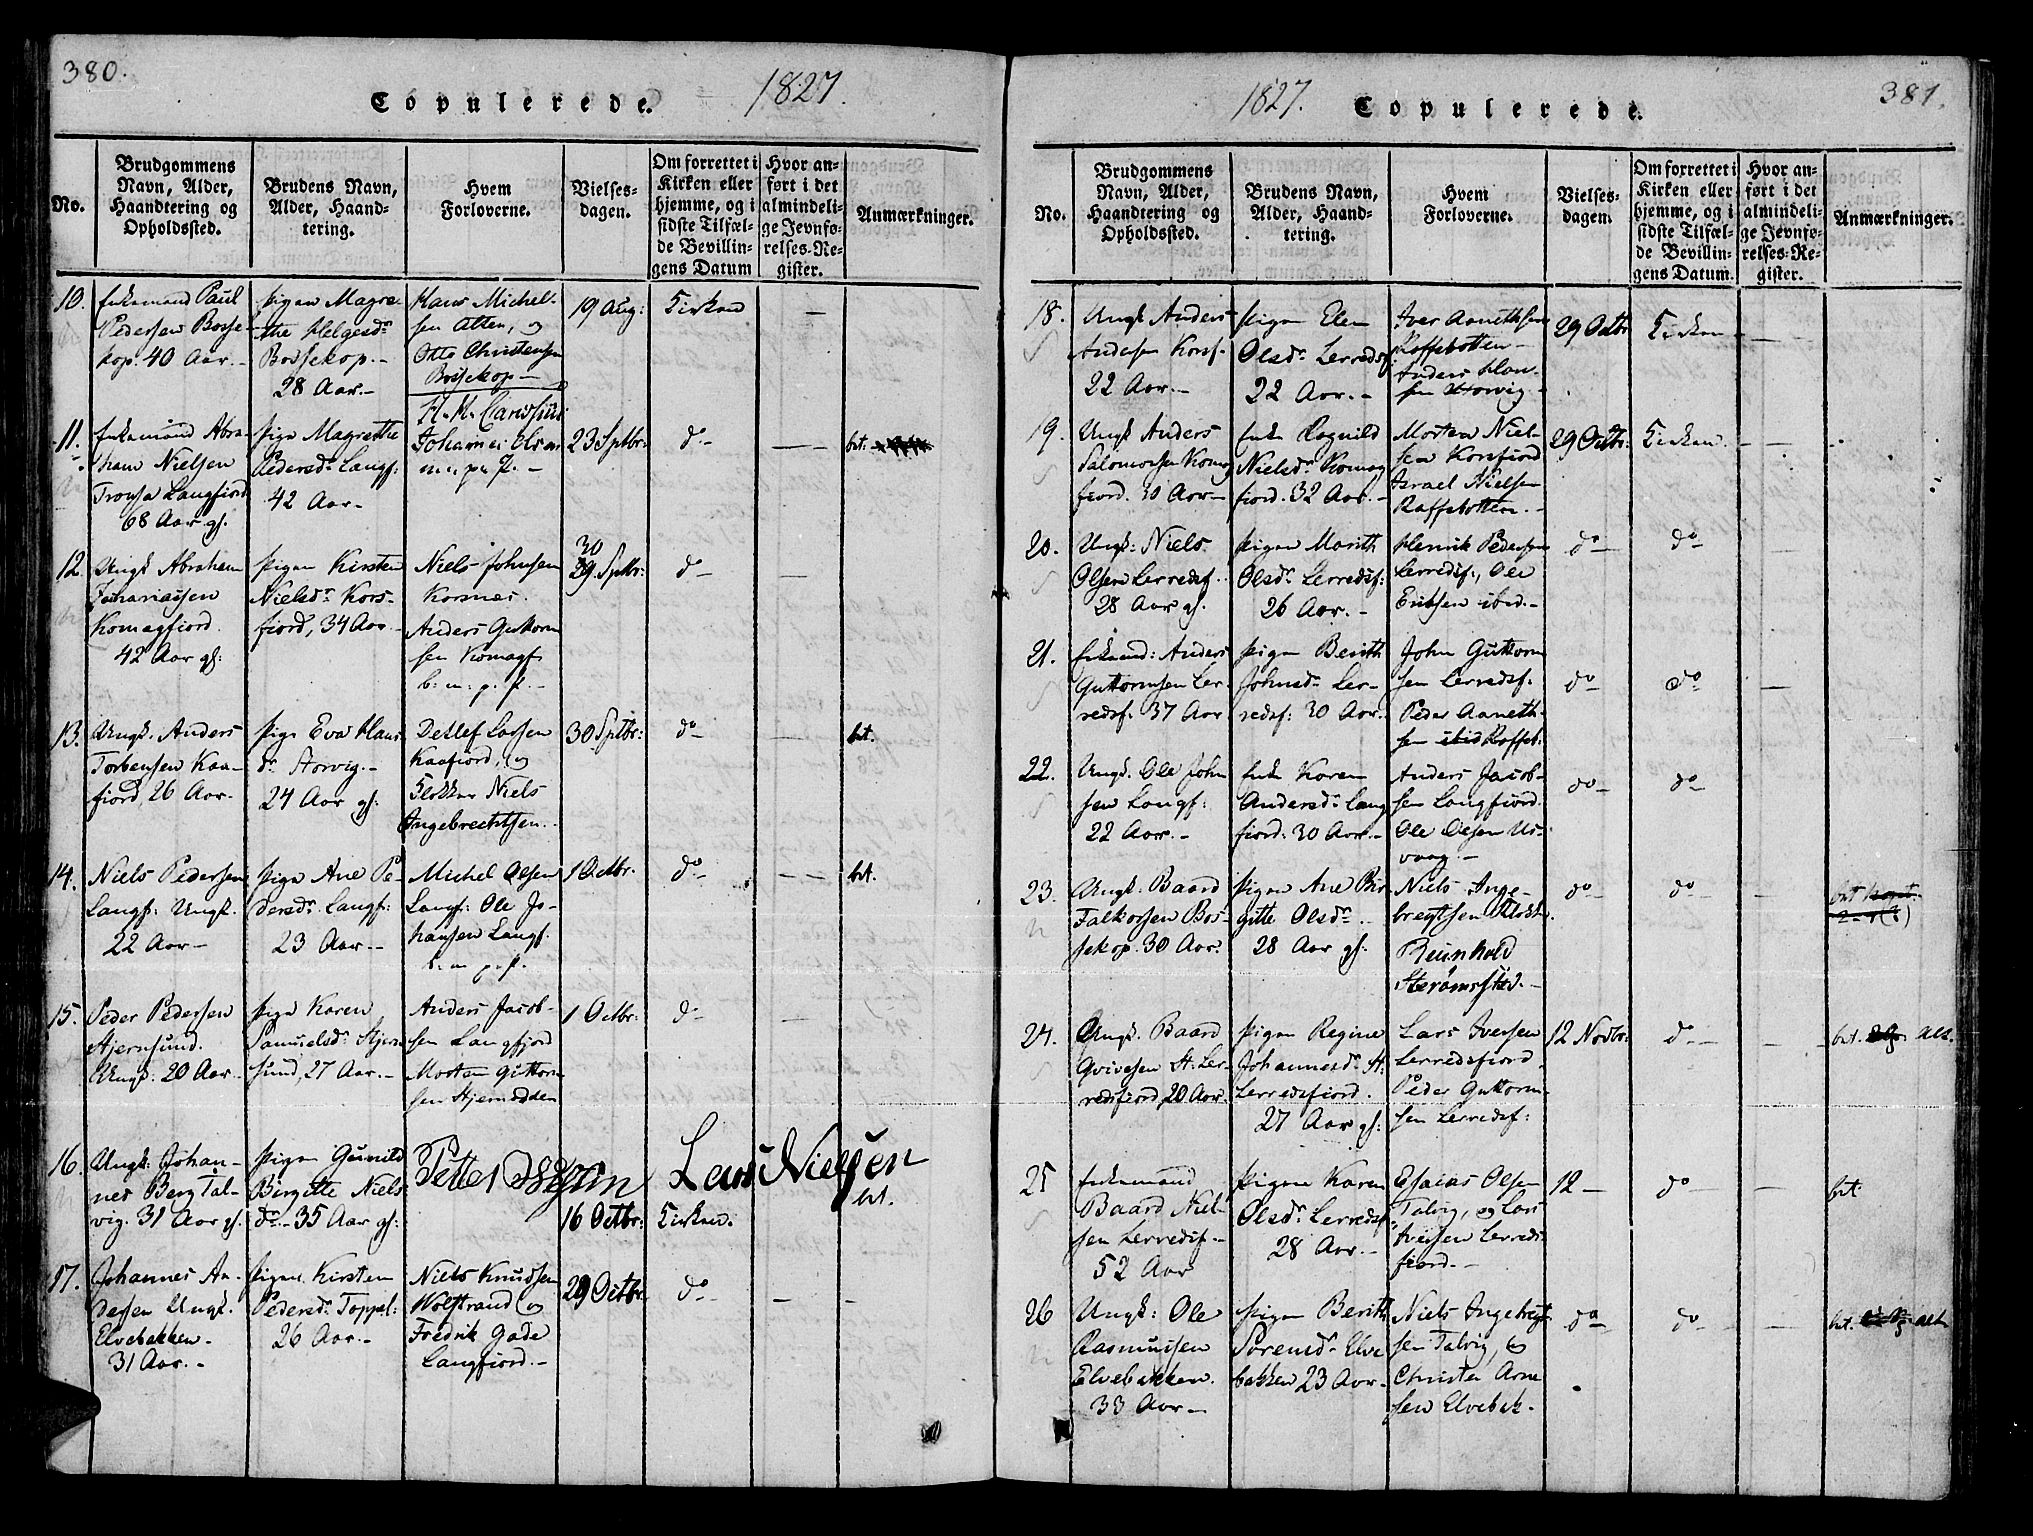 380.
Copulerede. 1827.
No.
Brudgommens Navn, Alder, Haandtering og Opholdssted.
Brudens Navn, Alder, Haandtering.
Hvem Forloverne.
Vielsesdagen.
Om forrettet i Kirken eller hjemme, og i sidste Tilfælde Bevillingens Datum
Hvor anført i det almindelige Jevnførelses-Register.
Anmærkninger.
10.
Enkemand Paul
Pedersen Bosse-
kop. 40 Aar –
Pigen Magre-
the Helgesdr
Bossekop. –
28 Aar. –
Hans Michel-
sen Alten, og
Otto Christensen
Bossekop –
19 Aug:
Kirken
—
11.
Enkemand Abra-
ham Nielsen
Langfiord
68 Aar gl.
Pige Magrethe
Pedersdr Langf:
42 Aar –
Johannes
m. p. P. –
23 Septbr:
do –
—
bet.
12.
Ungk Abraham
Komagfiord.
42 Aar gl:
Pigen Kirsten
Nielsdr Kors-
fiord, 34 Aar –
Niels Johnsen
Korsnæs.
Anders Guttorm
sen Komagf.
b: m: p: p. –
30
29 Septbr:
do –
—
13.
Ungk. Anders
Torbensen Kaa-
fiord, 26 Aar –
Pige Eva Hans
dr Storvig. –
24 Aar gl:
Detlef Larsen
Kaafiord, og
Klokker Niels
Ingebrechtsen. –
30 Septbr:
do –
—
bet.
14.
Niels Pedersen
Langf: Ungk.
22 Aar –
Pige Ane Pe-
dersdr Langf:
23 Aar. –
Michel Olsen
Langf: Ole Jo-
hansen Langf.
b: m p. p.
1 Octbr.
do –
— –
bet.
15.
Peder Pedersen
Stjernsund.
Ungk. 20 Aar –
Pige Karen
Samuelsdr Stjern
sund, 27 Aar. –
Anders Jacob-
sen Langfjord
Morten Guttorm
sen Stjernodden
1 Octbr:
do –
—
16.
Ungk: Johan-
nes Berg Tal-
vig. 31 Aar gl.
Pigen Gunild
Birgitte Niels
dr – 35 Aar gl:
Lars Nielsen
16 Octbr:
Kirken.
bet.
17.
Johannes An-
dersen Ungk.
Elvebakken –
31 Aar. –
Pigen Kirsten
Pedersdr Toppel:
26 Aar. –
Niels Knudsen
Wolstrand og
Fredrik Gade
Langfiord. –
29 Octbr.
do –
—
–
1827. Copulerede.
381.
No.
Brudgommens Navn, Alder, Haandtering og Opholdssted.
Brudens Navn, Alder, Haandtering.
Hvem Forloverne.
Vielsesdagen.
Om forrettet i Kirken eller hjemme, og i sidste Tilfælde Bevillingens Datum.
Hvor anført i det almindelige Jevnførelses-Register.
Anmærkninger.
18.
Ungk Anders
Andersen Korsf –
22 Aar. –
Pigen Elen
Olsdr Lerredsf:
22 Aar. –
Iver Aanethsen
Raffsbotten –
Anders Han-
sen Storvig. –
29 Octbr
Kirken
—
19.
Ungk Anders
Salomonsen Komag
fiord. 30 Aar –
Enke Ragnild
Nielsdr Komag
fiord. 32 Aar. –
Morten Niel-
sen Korsfiord
Israel Nielsen
Raffsbotten. –
29 Octbr:
Kirken.
—
20.
Ungk: Niels
Olsen Lerredsf.
28 Aar gl.
Pigen Marith
Olsdr Lerredsf:
26 Aar. –
Henrik Pedersen
Lerredsf:, Ole
Eriksen ibid. –
do –
do
21.
Enkemd: Anders
Guttormsen Ler-
redsf: 37 Aar
Pigen Berith
Johnsdr Ler-
redsf: 30 Aar –
John Guttorm
sen Lerredsf.
Peder Aaneth-
sen ibid Raffsb:
do –
do
—
22.
Ungk. Ole John
sen Langf:
22 Aar. –
Enke Karen
Andersdr Lang
fiord: 30 Aar. –
Anders Jacob-
sen Langfiord.
Ole Olsen Us-
vaag. –
do –
do –
23.
Ungk. Baard
Falkorsen Bos-
sekop. 30 Aar.
Pigen Ane Bir
gitte Olsdr
28 Aar gl.
Niels Inge-
bregtsen Klokk:
Reinhold
Strømsted. –
do –
do
—
bet
24.
Ungk. Baard
St: Ler-
redsfiord, 20 Aar.
Pigen Regine
Johannesdr St:
Lerredsfiord.
27 Aar gl:
Lars Iversen
Lerredsfiord
Peder Guttorm-
sen Lerredsf:
12 Novbr:
do –
—
bet. Alt.
25
Enkemand
Baard Niel-
sen Lerredsf –
52 Aar
Pigen Karen
Olsdr Lerredsf
28 Aar. –
Esaias Olsen
Talvig, og Lars
Iversen Lerreds-
fiord. –
12 –
do –
—
bet.
26
Ungk: Ole
Rasmussen
Elvebakken.
33 Aar –
Pigen Berith
Sørensdr Elve
bakken 23 Aar –
Niels Ingebregt-
sen Talvig, og
Christen Arne
sen Elvebak –
do –
do –
—
bet. Alt